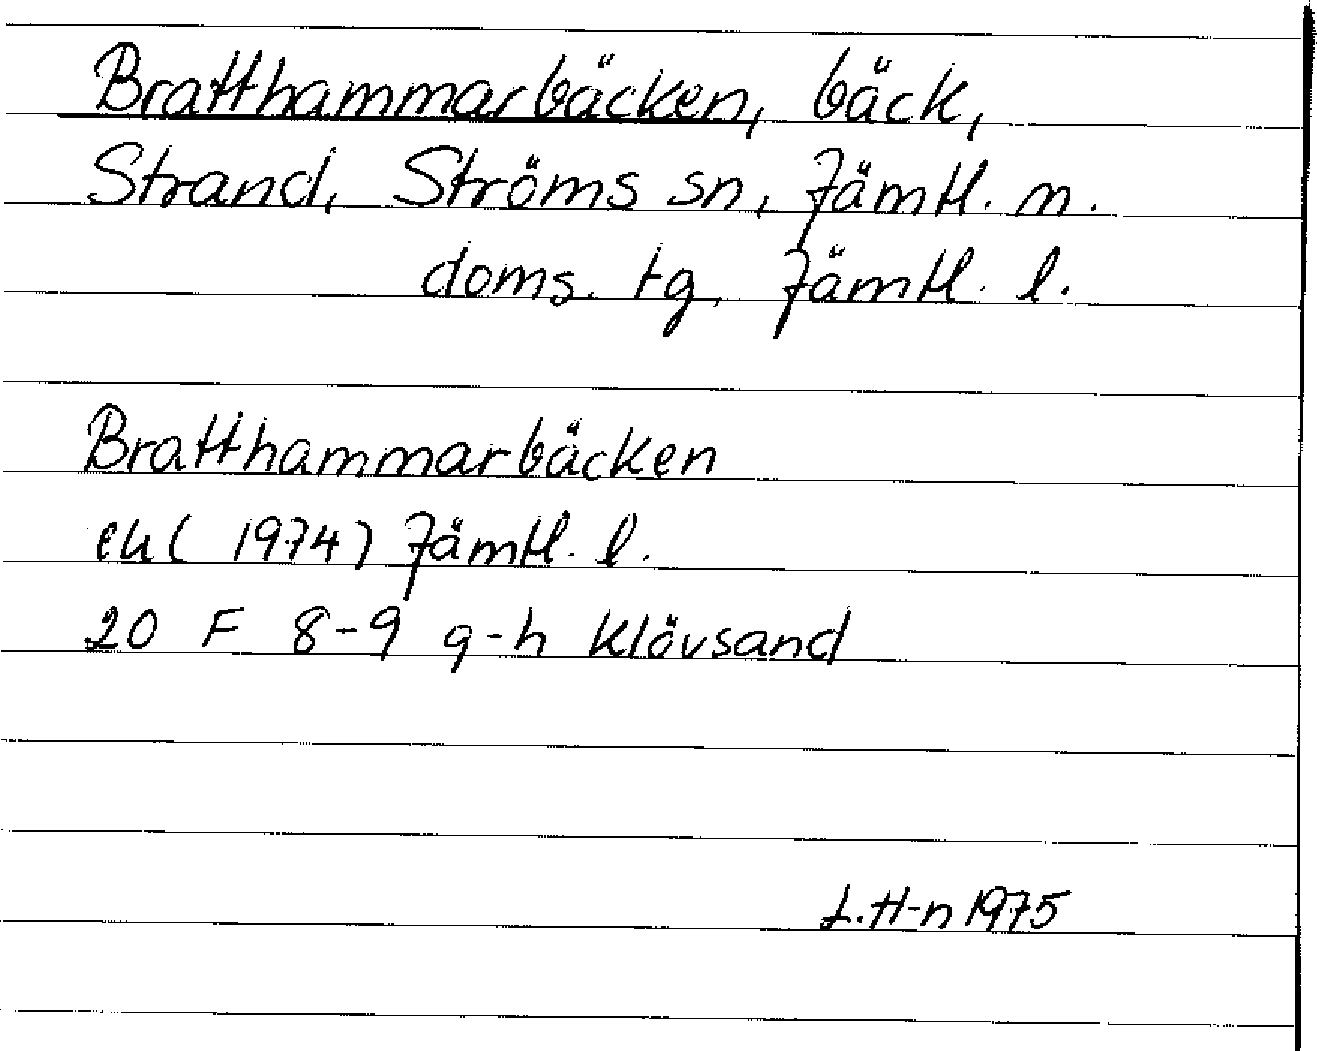 Bratthammarbäcken, bäck,
Strand, Ströms sn, Jämtl. n.
doms. tg, Jämtl. l.
Bratthammarbäcken
ek (1974) Jämtl. l.
20 F 8-9 g-h Klövsand
L.H-n 1975